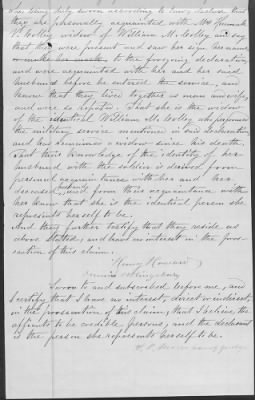 who being duly sworn according to law, declare that
they are personally acquainted with Mrs Hannah
V. Colley widow of William M. Colley and say
that they were present and saw her sign her name
or make her mark to the foregoing declaration,
and were acquainted with her and her said
husband before he entered the service, and
know that they lived together as man and wife,
and were so reputed. That she is the widow
of the identical William M. Colley who performed
the military service mentioned in said Declaration
and has remained a widow since his death,
That their knowledge of the identity of her
husband with the soldier is derived from
personal acquaintance with her and her
deceased husband, and from this acquaintance with
her know that she is the identical person she
represents herself to be.
And they further testify that they reside as
above stated, and have no interest in the prose-
cution of this claim.
Henry Howard
Kingsbury
Sworn to and subscribed before me, and
I certify that I have no interest, direct or indirect,
in the prosecution of this claim, that I believe the
affiants to be credible persons, and the declarant
is the person she represents herself to be.
County Judge